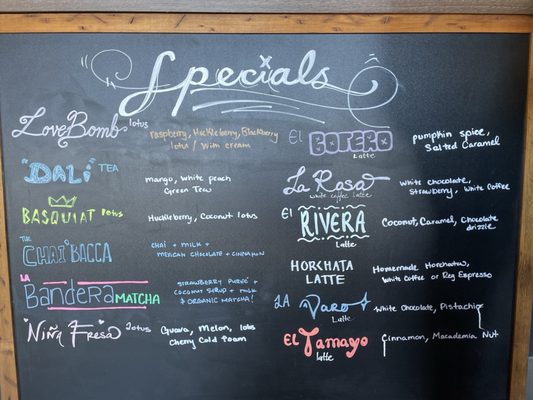 Specials
LoveBomb lotus
Raspberry, Huckleberry, Blackberry
lotus / with cream
"DALI" TEA
mango, white peach
Green Tea
BASQUIAT lotus
Huckleberry, Coconut lotus
THE
CHAI'BACCA
CHAI + MILK +
MEXICAN CHOCOLATE + CINNAMON
LA
BANDERA MATCHA
STRAWBERRY PUREÉ +
COCONUT SYRUP + MILK
& ORGANIC MATCHA!
NIÑA FRESA lotus
Guava, Melon, lotus
Cherry Cold foam
El BOTERO
Latte
pumpkin spice,
Salted Caramel
La Rosa
white coffee latte
White chocolate,
Strawberry, White Coffee
El RIVERA
Latte
Coconut, Caramel, Chocolate
drizzle
HORCHATA
LATTE
Homemade Horchata,
White Coffee or Reg Espresso
LA Daro
Latte
White Chocolate, Pistachio
El Tamayo
latte
Cinnamon, Macademia Nut